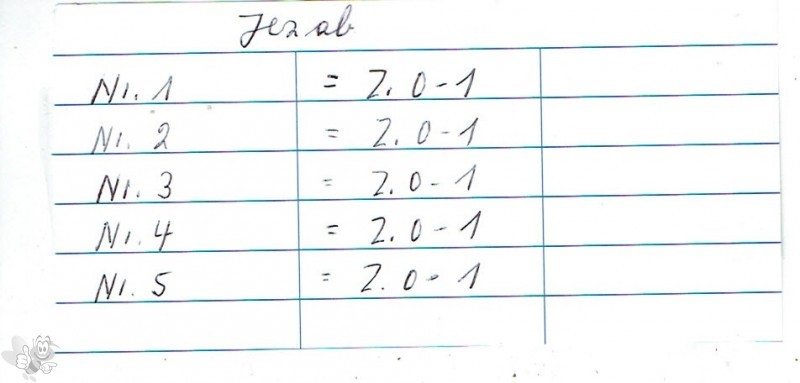 Jezab
Nr. 1 = Z. 0-1
Nr. 2 = Z. 0-1
Nr. 3 = Z. 0-1
Nr. 4 = Z. 0-1
Nr. 5 = Z. 0-1